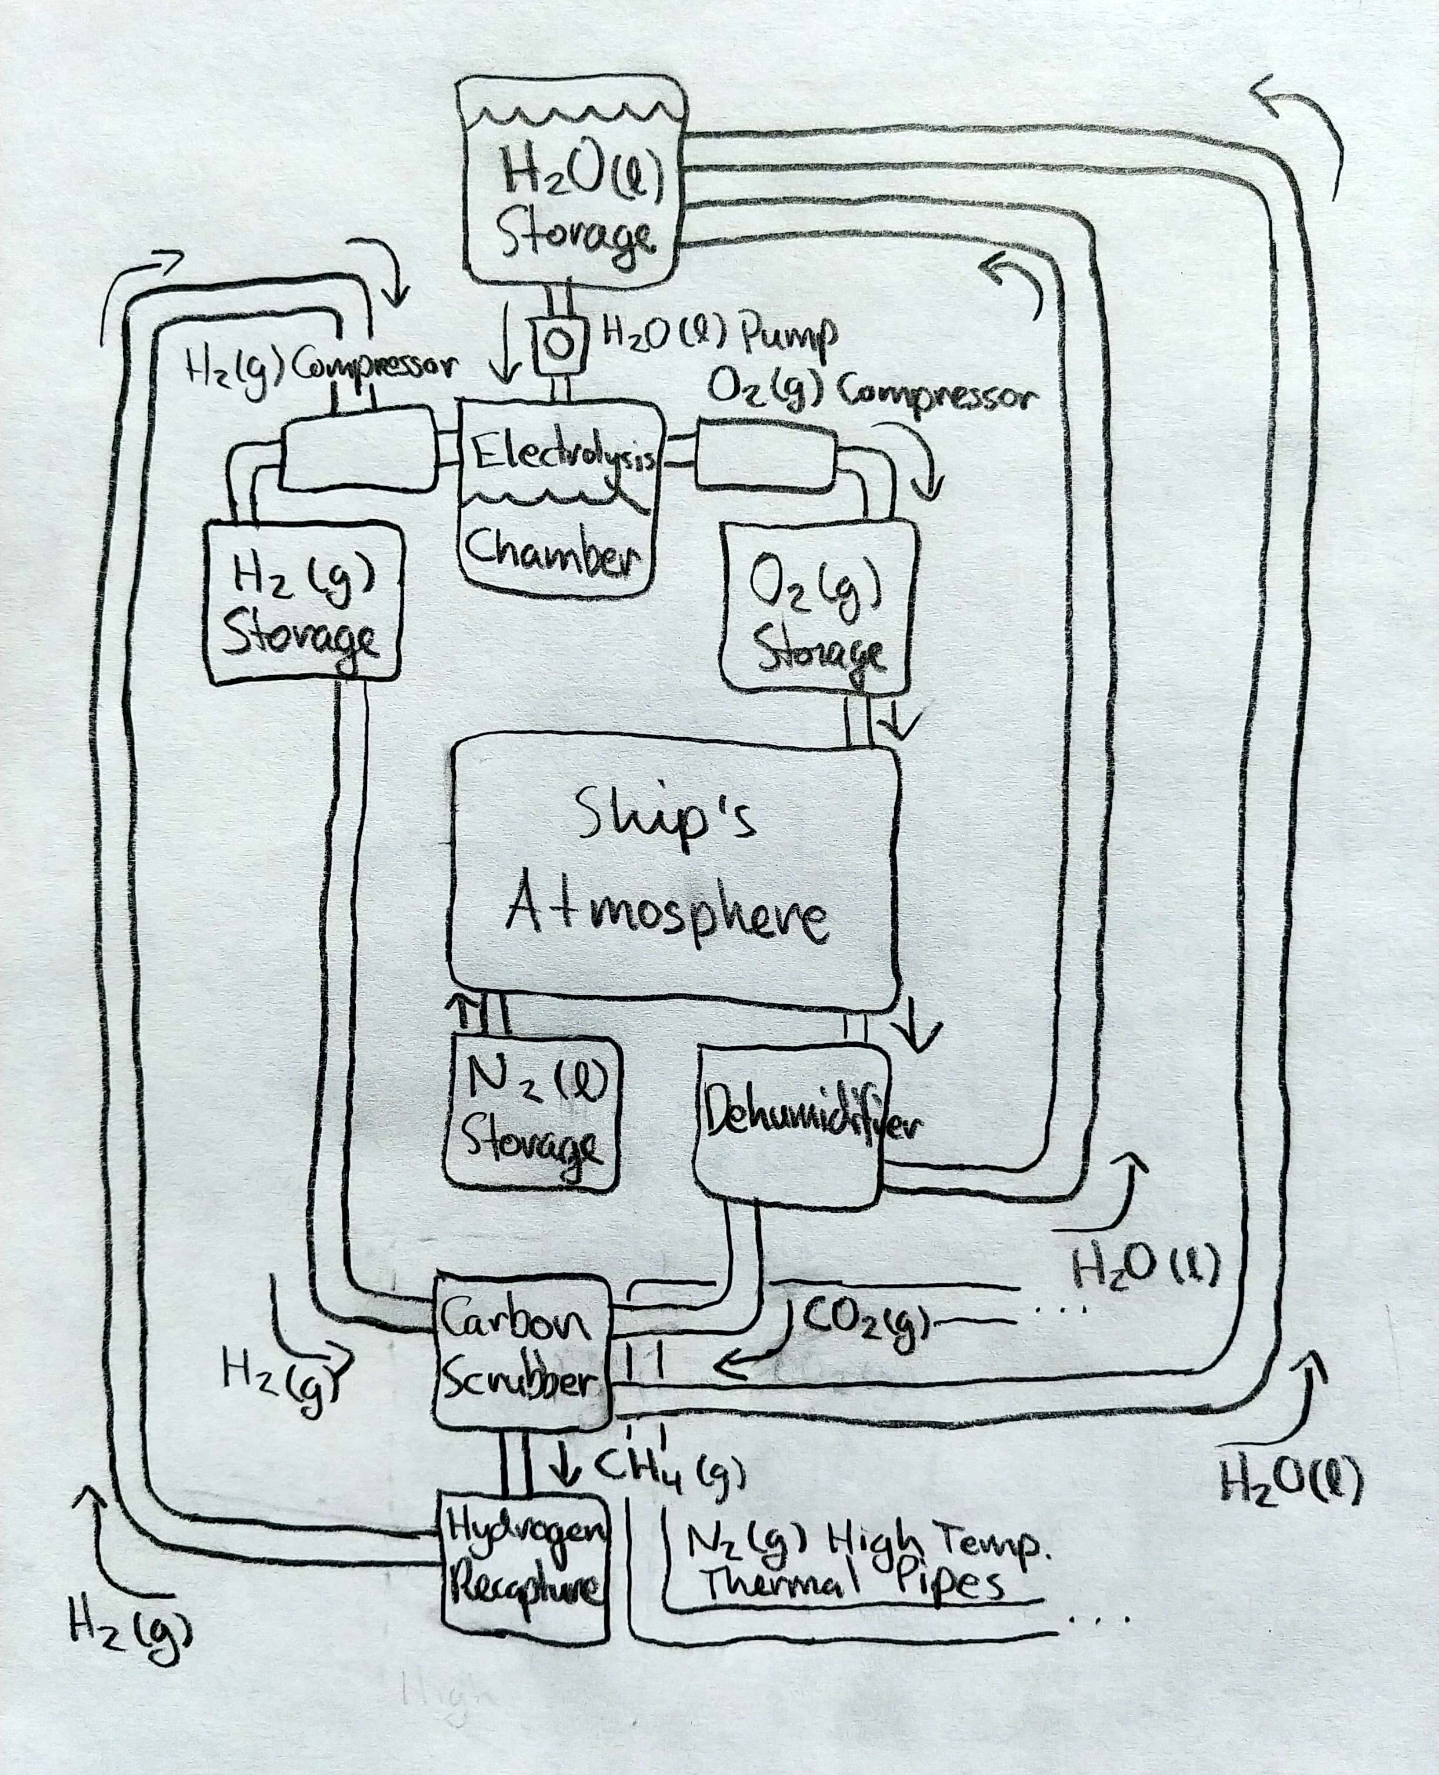 H₂O(l)
Storage
H₂O(l) Pump
H₂(g) Compressor
O₂(g) Compressor
Electrolysis
Chamber
H₂(g)
Storage
O₂(g)
Storage
Ship's
Atmosphere
N₂(l)
Storage
Dehumidifier
H₂O(l)
Carbon
Scrubber
CO₂(g)
...
H₂(g)
CH₄(g)
H₂O(l)
Hydrogen
Recapture
N₂(g) High Temp.
Thermal Pipes
...
H₂(g)
High